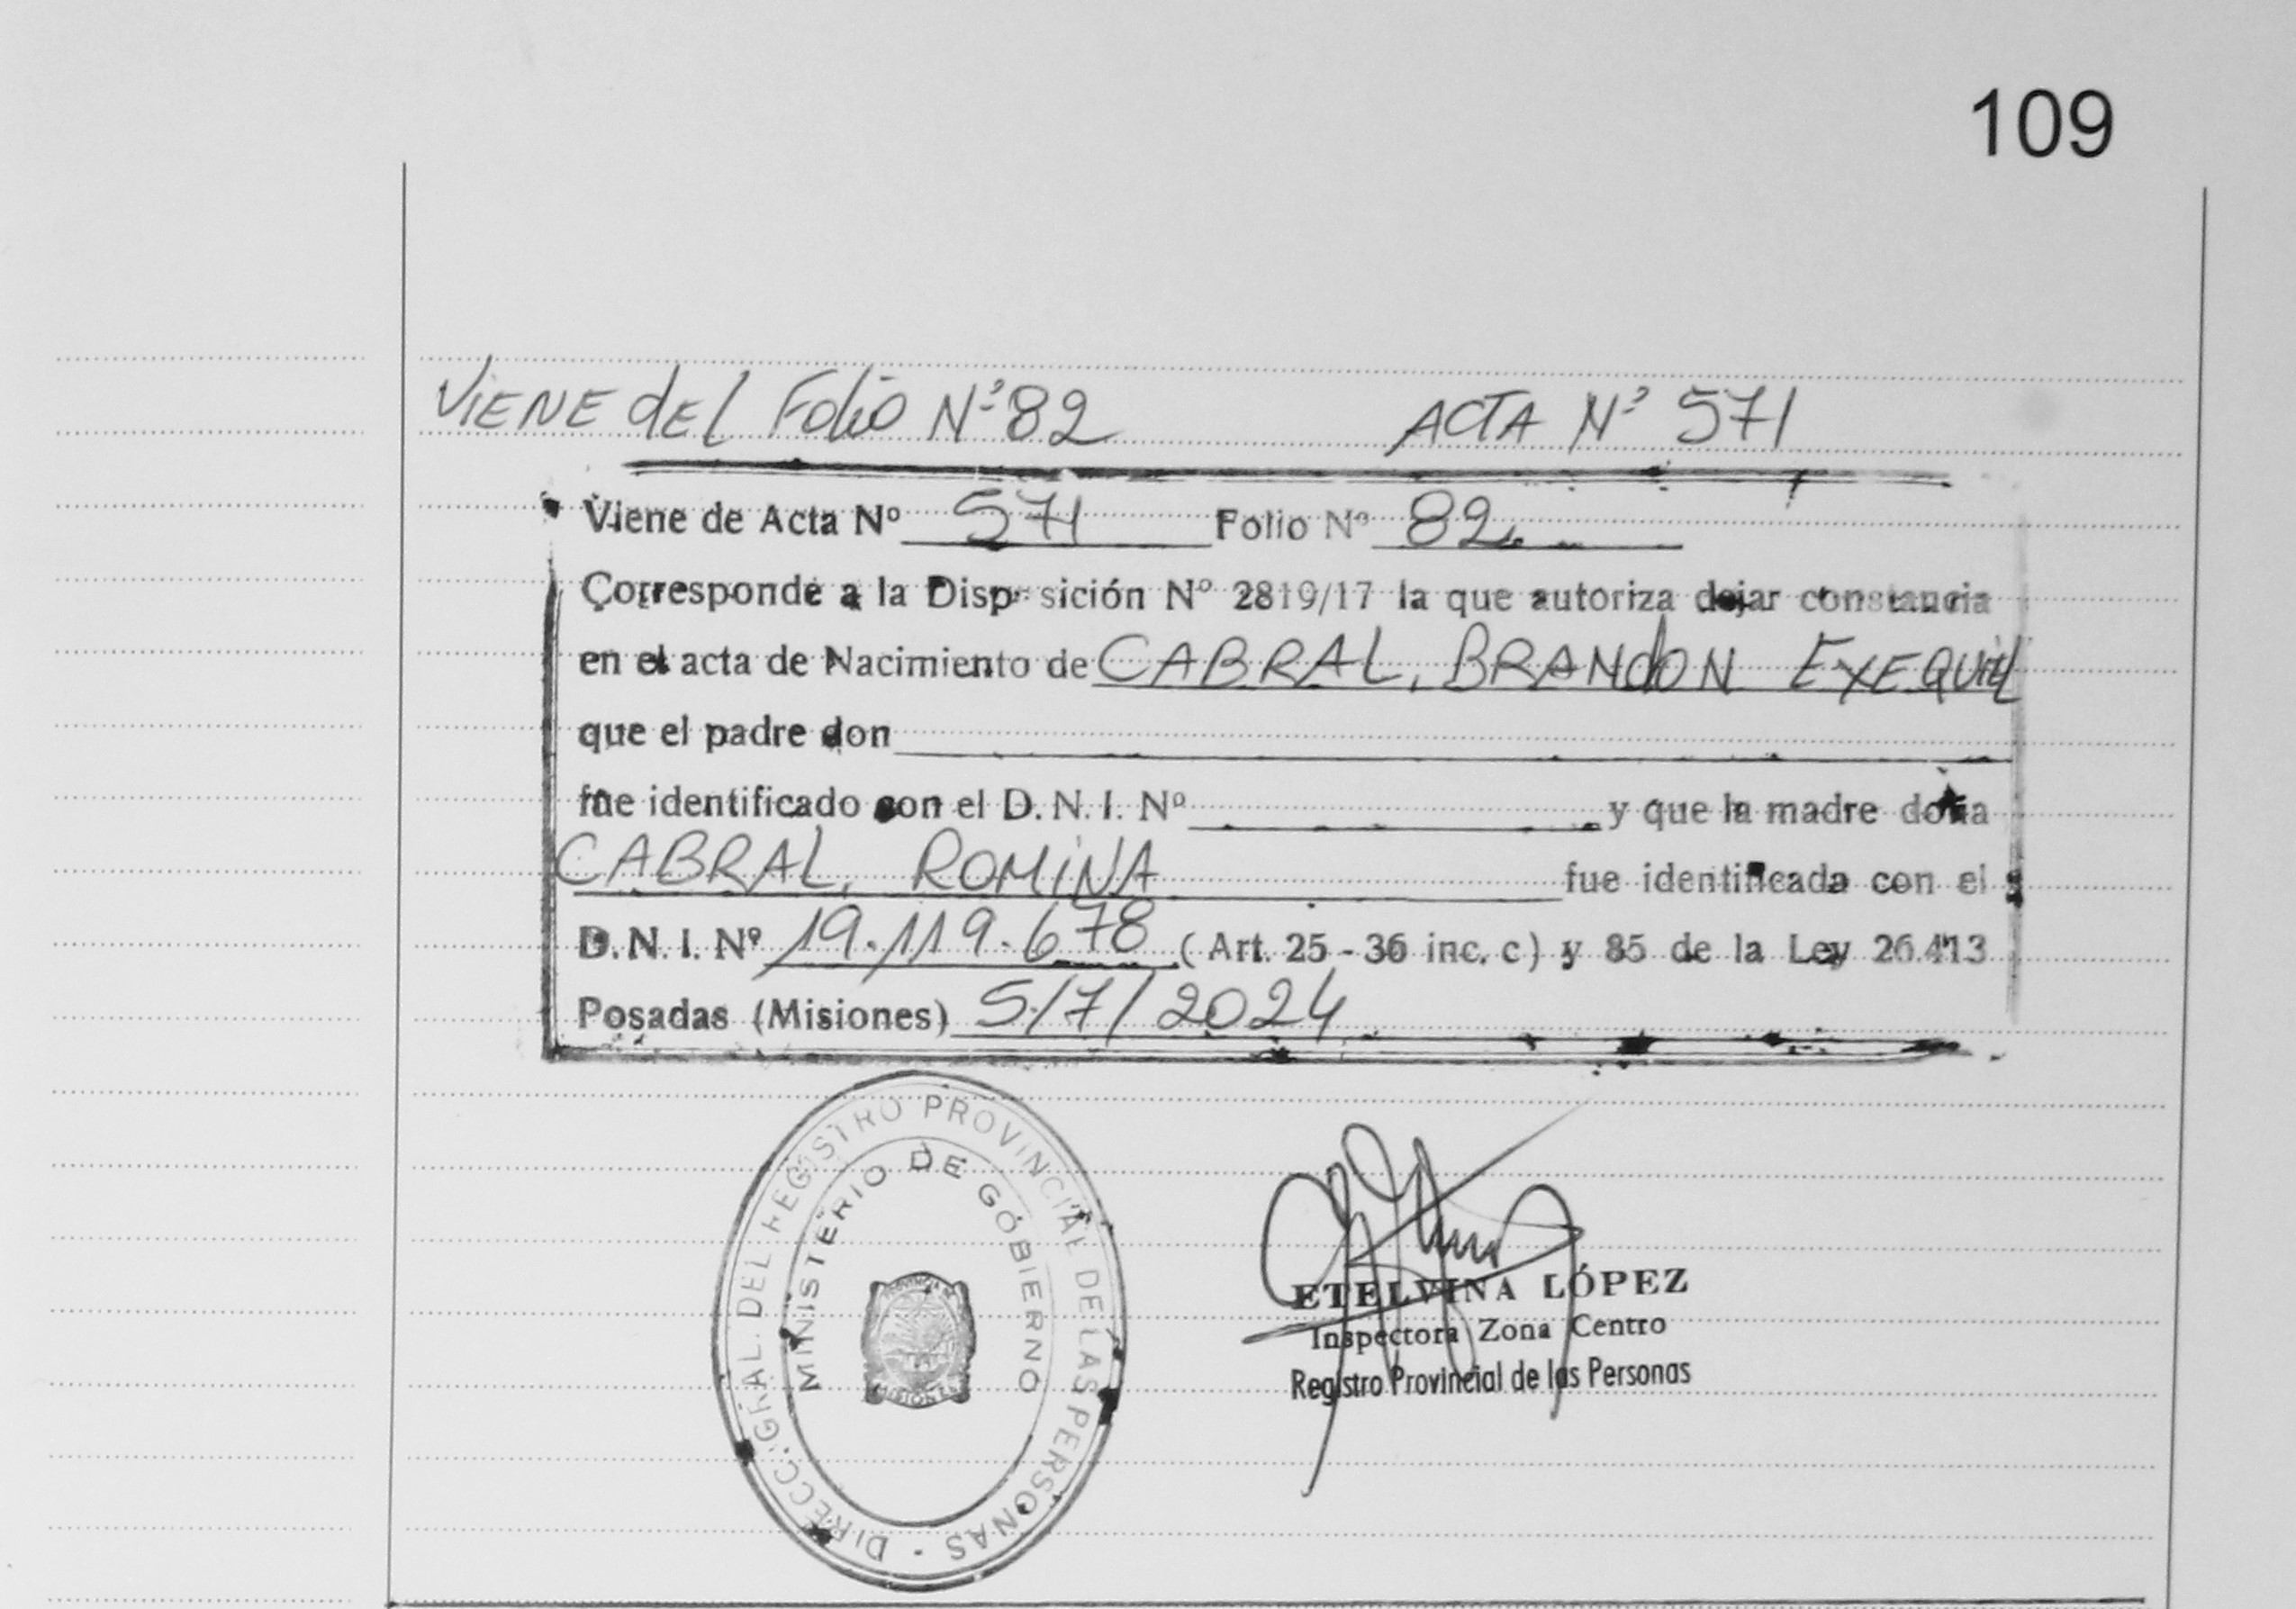 109
VIENE dEL FOLIO Nº 82 ACTA Nº 571
Viene de Acta Nº 571 Folio Nº 82
Corresponde a la Disposición Nº 2819/17 la que autoriza dejar constancia
en el acta de Nacimiento de CABRAL, BRANdON EXEQUIEL
que el padre don
fue identificado con el D.N.I. Nº y que la madre doña
CABRAL, ROMINA fue identificada con el
D.N.I. Nº 19.119.678 (Art. 25 - 36 inc. c) y 85 de la Ley 26.413
Posadas (Misiones) 5/7/2024
DIRECC. GRAL. DEL REGISTRO PROVINCIAL DE LAS PERSONAS -
MINISTERIO DE GOBIERNO
PROVINCIA
MISIONES
ETELVINA LÓPEZ
Inspectora Zona Centro
Registro Provincial de las Personas